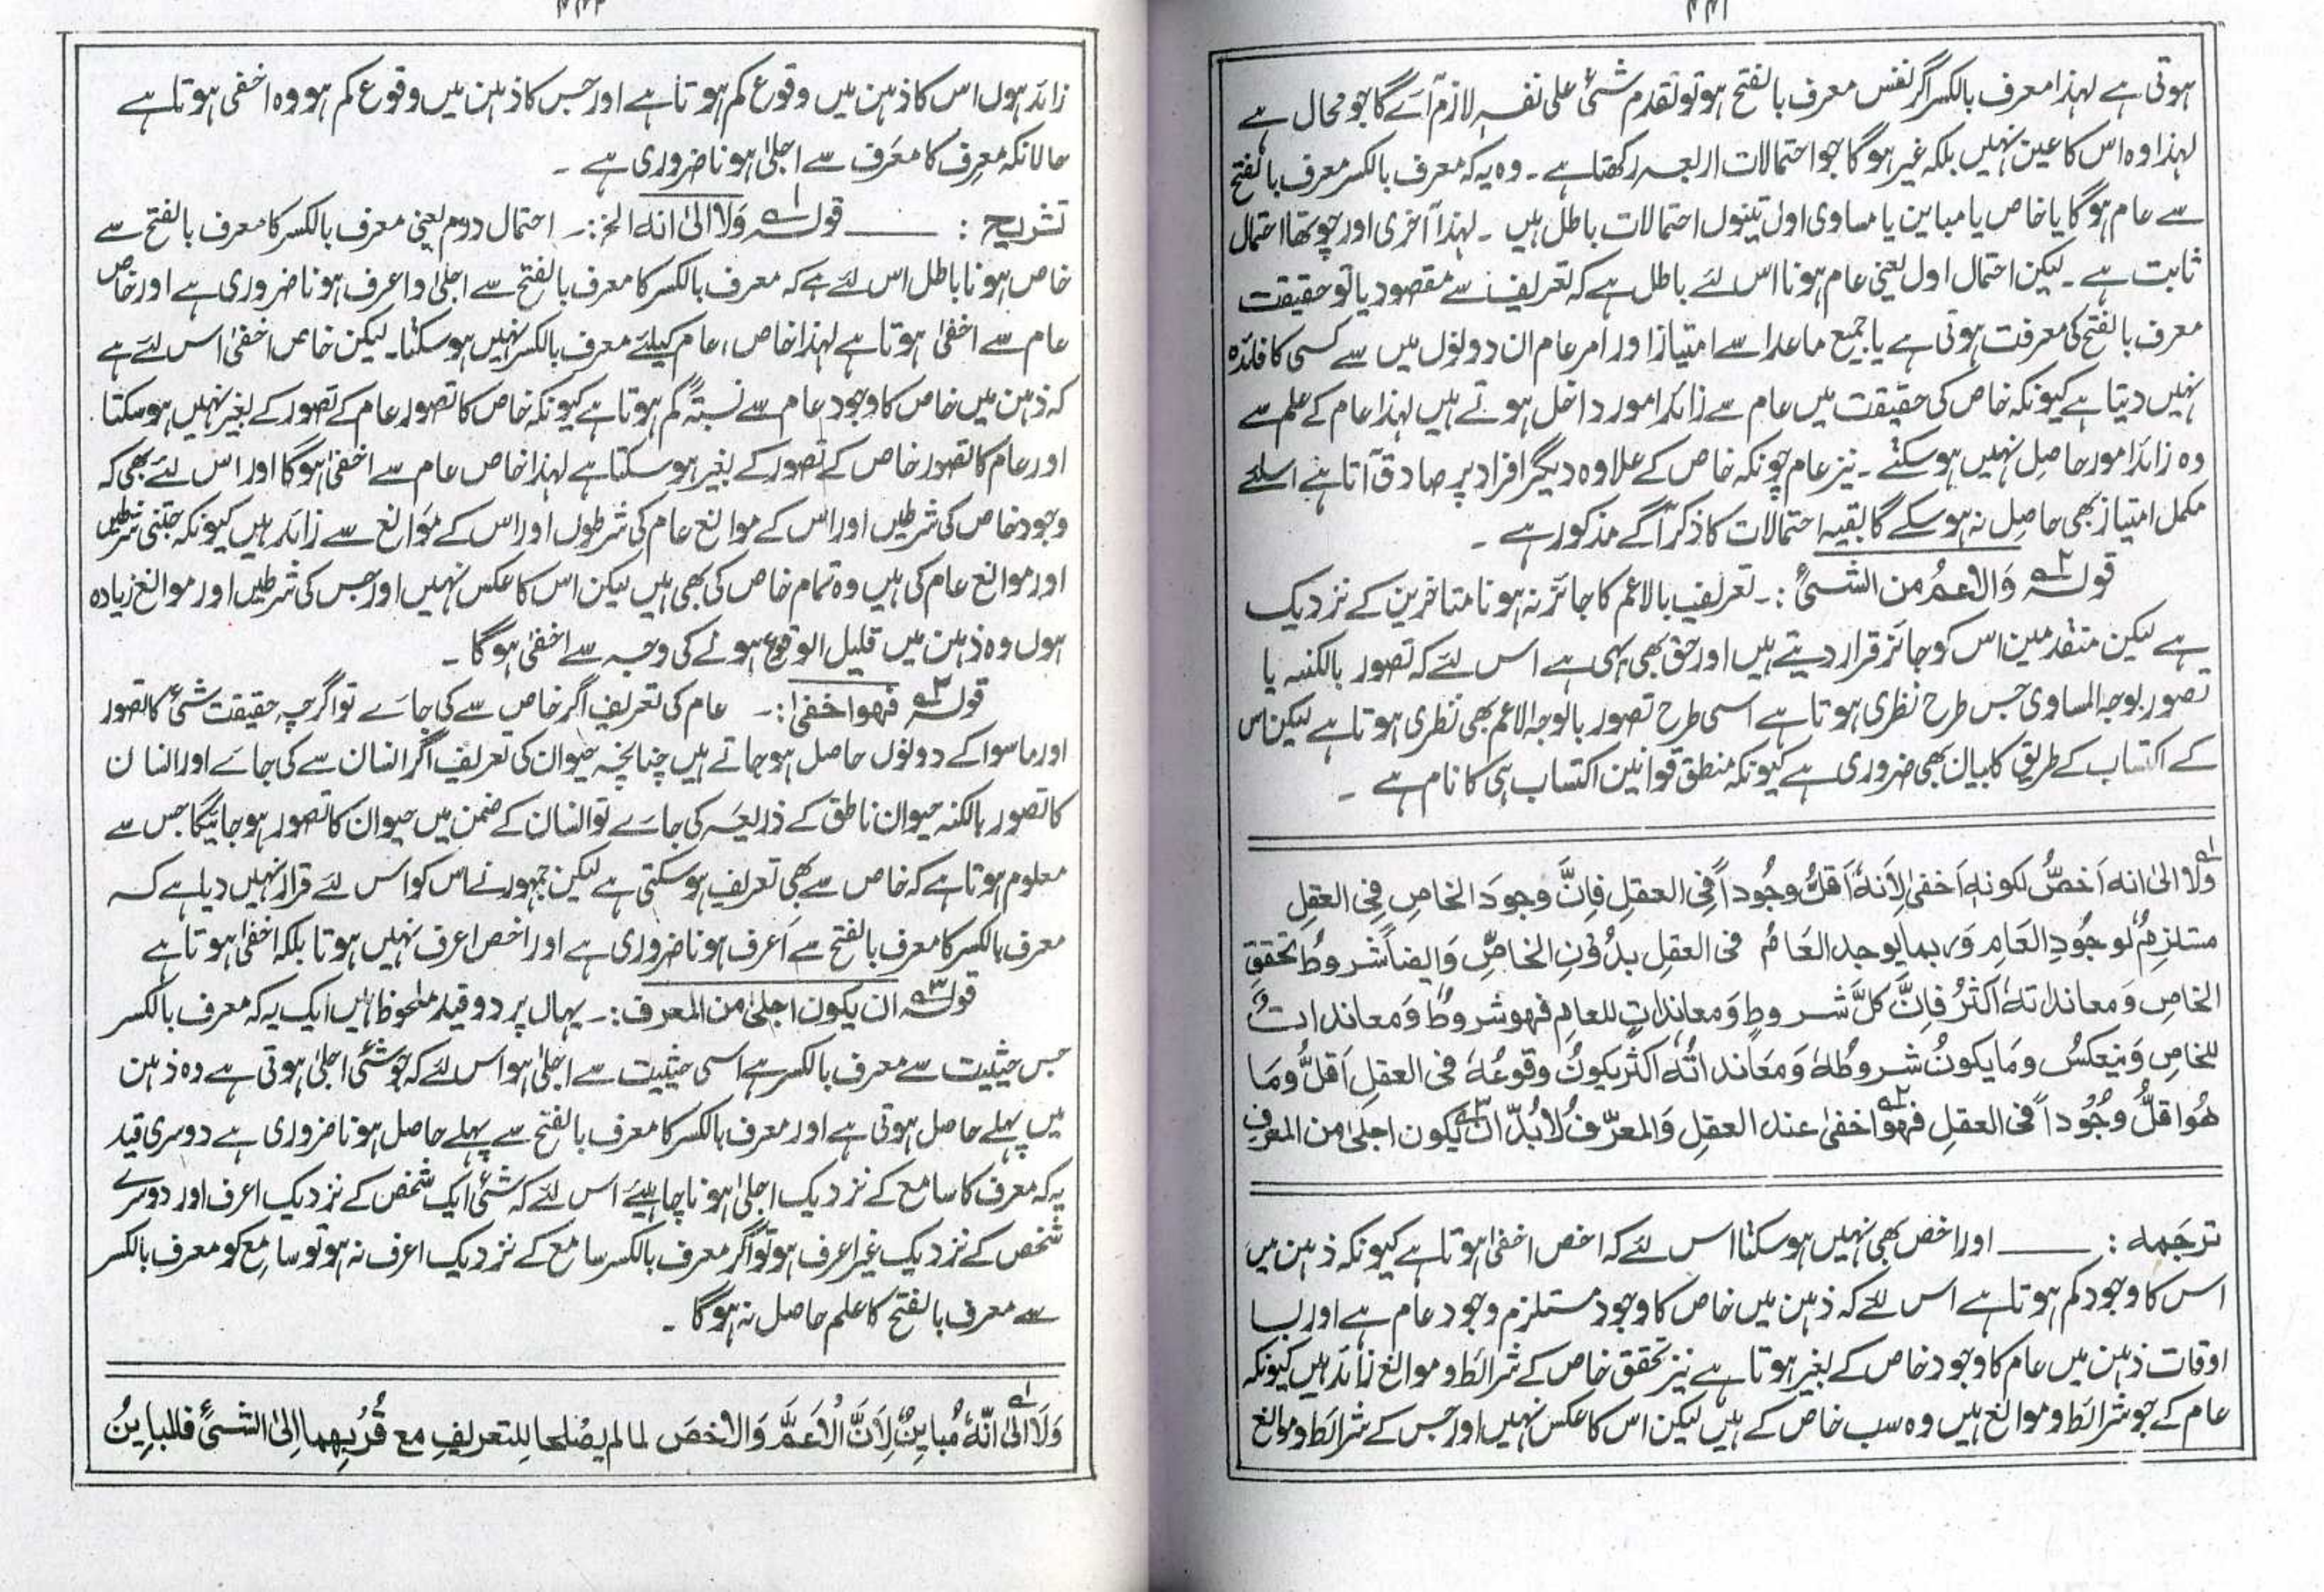 ۲۲۱
ہوتی ہے لہذا معرف بالکسر اگر نفس معرف بالفتح ہو تو تقدم شئ علی نفسہ لازم آئے گا جو محال ہے
لہذا وہ اس کا عین نہیں بلکہ غیر ہوگا جو احتمالات اربعہ رکھتا ہے ۔ وہ یہ کہ معرف بالکسر معرف بالفتح
سے عام ہوگا یا خاص یا مباین یا مساوی اول تینوں احتمالات باطل ہیں ۔ لہذا آخری اور چوتھا احتمال
ثابت ہے ۔ لیکن احتمال اول یعنی عام ہونا اس لئے باطل ہے کہ تعریف سے مقصود یا تو حقیقت
معرف بالفتح کی معرفت ہوتی ہے یا جمیع ماعدا سے امتیاز اور امر عام ان دونوں میں سے کسی کا فائدہ
نہیں دیتا ہے کیونکہ خاص کی حقیقت میں عام سے زائد امور داخل ہوتے ہیں لہذا عام کے علم سے
وہ زائد امور حاصل نہیں ہو سکتے ۔ نیز عام چونکہ خاص کے علاوہ دیگر افراد پر صادق آتا ہے اسلئے
مکمل امتیاز بھی حاصل نہ ہو سکے گا بقیہ احتمالات کا ذکر آگے مذکور ہے ۔
قولہ ۲؎ وَالاعمُ من الشئ :۔ تعریف بالاعم کا جائز نہ ہونا متاخرین کے نزدیک
ہے لیکن متقدمین اس کو جائز قرار دیتے ہیں اور حق بھی یہی ہے اس لئے کہ تصور بالکنہ یا
تصور بوجہ المساوی جس طرح نظری ہوتا ہے اسی طرح تصور بالوجہ الاعم بھی نظری ہوتا ہے لیکن اس
کے اکتساب کے طریق کا بیان بھی ضروری ہے کیونکہ منطق قوانین اکتساب ہی کا نام ہے ۔
۱؎ ولا الیٰ انہ اَخصُّ لکونہٖ اَخفیٰ لِاَنہٗ اَقلُّ وجُوداً فی العقلِ فاِنَّ وجودَ الخاصِ فِی العقلِ
مستلزمٌ لوجُودِ العَامِ وَربما یوجد العَامُ فی العقلِ بدُونِ الخاصِّ وَایضاً شروطُ تحققِ
الخاصِ وَمعانداتہٗ اکثرُ فاِنَّ کلَّ شروطٍ وَمعانداتٍ للعامِ فہو شروطٌ وَمعانداتٌ
للخاصِ وَینعکسُ وَمَا یکونُ شروطُہٗ وَمعانداتُہٗ اکثر یکونُ وقوعُہٗ فی العقلِ اَقلُّ وَمَا
ھُوَ اقلُّ وجُوداً فی العقلِ فہوَ ۲؎ اخفیٰ عند العقلِ وَالمعرّفُ لابُدّ ان ۳؎ یکون اجلیٰ من المعرفِ
ترجَمہ : ـــــ اور اخص بھی نہیں ہو سکتا اس لئے کہ اخص اخفیٰ ہوتا ہے کیونکہ ذہن میں
اس کا وجود کم ہوتا ہے اس لئے کہ ذہن میں خاص کا وجود مستلزم وجود عام ہے اور بسا
اوقات ذہن میں عام کا وجود خاص کے بغیر ہوتا ہے نیز تحقق خاص کے شرائط و موانع زائد ہیں کیونکہ
عام کے جو شرائط و موانع ہیں وہ سب خاص کے ہیں لیکن اس کا عکس نہیں اور جس کے شرائط و موانع
۲۲۲
زائد ہوں اس کا ذہن میں وقوع کم ہوتا ہے اور جس کا ذہن میں وقوع کم ہو وہ اخفی ہوتا ہے
حالانکہ معرِف کا معرَف سے اجلیٰ ہونا ضروری ہے ۔
تشریح : ـــــ قولہ ۱؎ وَلا الیٰ انہ الخ :۔ احتمال دوم یعنی معرف بالکسر کا معرف بالفتح سے
خاص ہونا باطل اس لئے ہے کہ معرف بالکسر کا معرف بالفتح سے اجلیٰ و اعرف ہونا ضروری ہے اور خاص
عام سے اخفیٰ ہوتا ہے لہذا خاص ، عام کیلئے معرف بالکسر نہیں ہو سکتا ۔ لیکن خاص اخفیٰ اس لئے ہے
کہ ذہن میں خاص کا وجود عام سے نسبتہً کم ہوتا ہے کیونکہ خاص کا تصور عام کے تصور کے بغیر نہیں ہو سکتا
اور عام کا تصور خاص کے تصور کے بغیر ہو سکتا ہے لہذا خاص عام سے اخفیٰ ہوگا اور اس لئے بھی کہ
وجود خاص کی شرطیں اور اس کے موانع عام کی شرطوں اور اس کے موانع سے زائد ہیں کیونکہ جتنی شرطیں
اور موانع عام کی ہیں وہ تمام خاص کی بھی ہیں لیکن اس کا عکس نہیں اور جس کی شرطیں اور موانع زیادہ
ہوں وہ ذہن میں قلیل الوقوع ہونے کی وجہ سے اخفیٰ ہوگا ۔
قولہ ۲؎ فہو اخفیٰ :۔ عام کی تعریف اگر خاص سے کی جائے تو اگرچہ حقیقت شئ کا تصور
اور ماسوا کے دونوں حاصل ہو جاتے ہیں چنانچہ حیوان کی تعریف اگر انسان سے کی جائے اور انسان
کا تصور بالکنہ حیوان ناطق کے ذریعہ کی جائے تو انسان کے ضمن میں حیوان کا تصور ہو جائیگا جس سے
معلوم ہوتا ہے کہ خاص سے بھی تعریف ہو سکتی ہے لیکن جمہور نے اس کو اس لئے قرار نہیں دیا ہے کہ
معرف بالکسر کا معرف بالفتح سے اَعرف ہونا ضروری ہے اور اخص اعرف نہیں ہوتا بلکہ اخفیٰ ہوتا ہے
قولہ ۳؎ ان یکون اجلیٰ من المعرف :۔ یہاں پر دو قید ملحوظ ہیں ایک یہ کہ معرف بالکسر
جس حیثیت سے معرف بالکسر ہے اسی حیثیت سے اجلیٰ ہو اس لئے کہ جو شئ اجلیٰ ہوتی ہے وہ ذہن
میں پہلے حاصل ہوتی ہے اور معرف بالکسر کا معرف بالفتح سے پہلے حاصل ہونا ضروری ہے دوسری قید
یہ کہ معرف کا سامع کے نزدیک اجلیٰ ہونا چاہیئے اس لئے کہ شئ ایک شخص کے نزدیک اعرف اور دوسرے
شخص کے نزدیک غیر اعرف ہو تو اگر معرف بالکسر سامع کے نزدیک اعرف نہ ہو تو سامع کو معرف بالکسر
سے معرف بالفتح کا علم حاصل نہ ہوگا ۔
۱؎ وَلَا الیٰ انّہٗ مُباینٌ لِاَنَّ الْاَعمَّ وَالاخصَ لما لم یصُلحا لِلتعریفِ مع قُربِھما اِلیٰ الشئ فالمباینُ